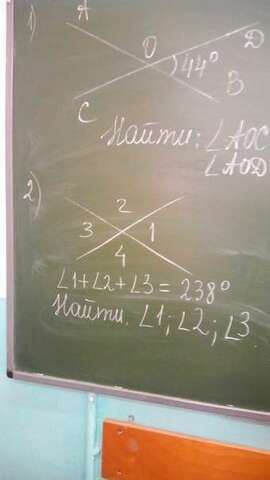 1)
A
O
D
44°
B
C
Найти: ∠AOC
∠AOD
2)
2
3
1
4
∠1+∠2+∠3=238°
Найти. ∠1; ∠2; ∠3.